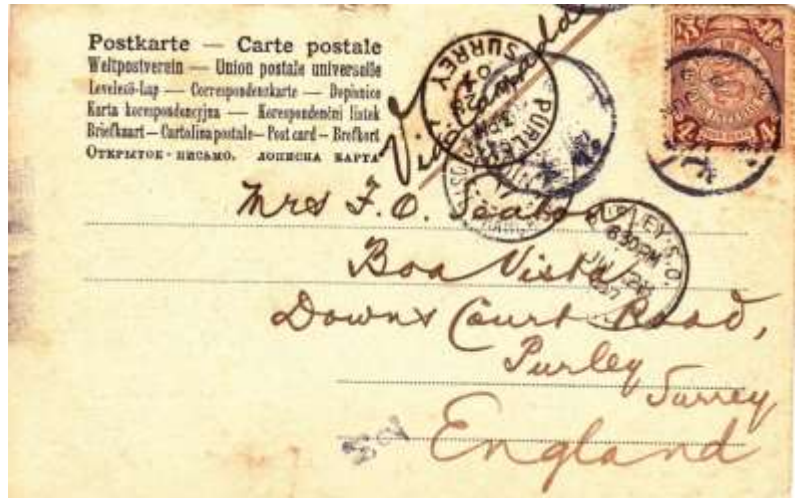 Postkarte — Carte postale
Weltpostverein — Union postale universelle
Levelező-Lap — Correspondenzkarte — Dopisnice
Karta korespondencyjna — Korespondenční lístek
Briefkaart — Cartolina postale — Post card — Brefkort
Открытое письмо. дописна карта
Via Canada
PURLEY
SURREY
28
Mrs F. O. Seaton
Boa Vista
Downs Court Road,
Purley
Surrey
England
PURLEY S.O.
6 30 PM